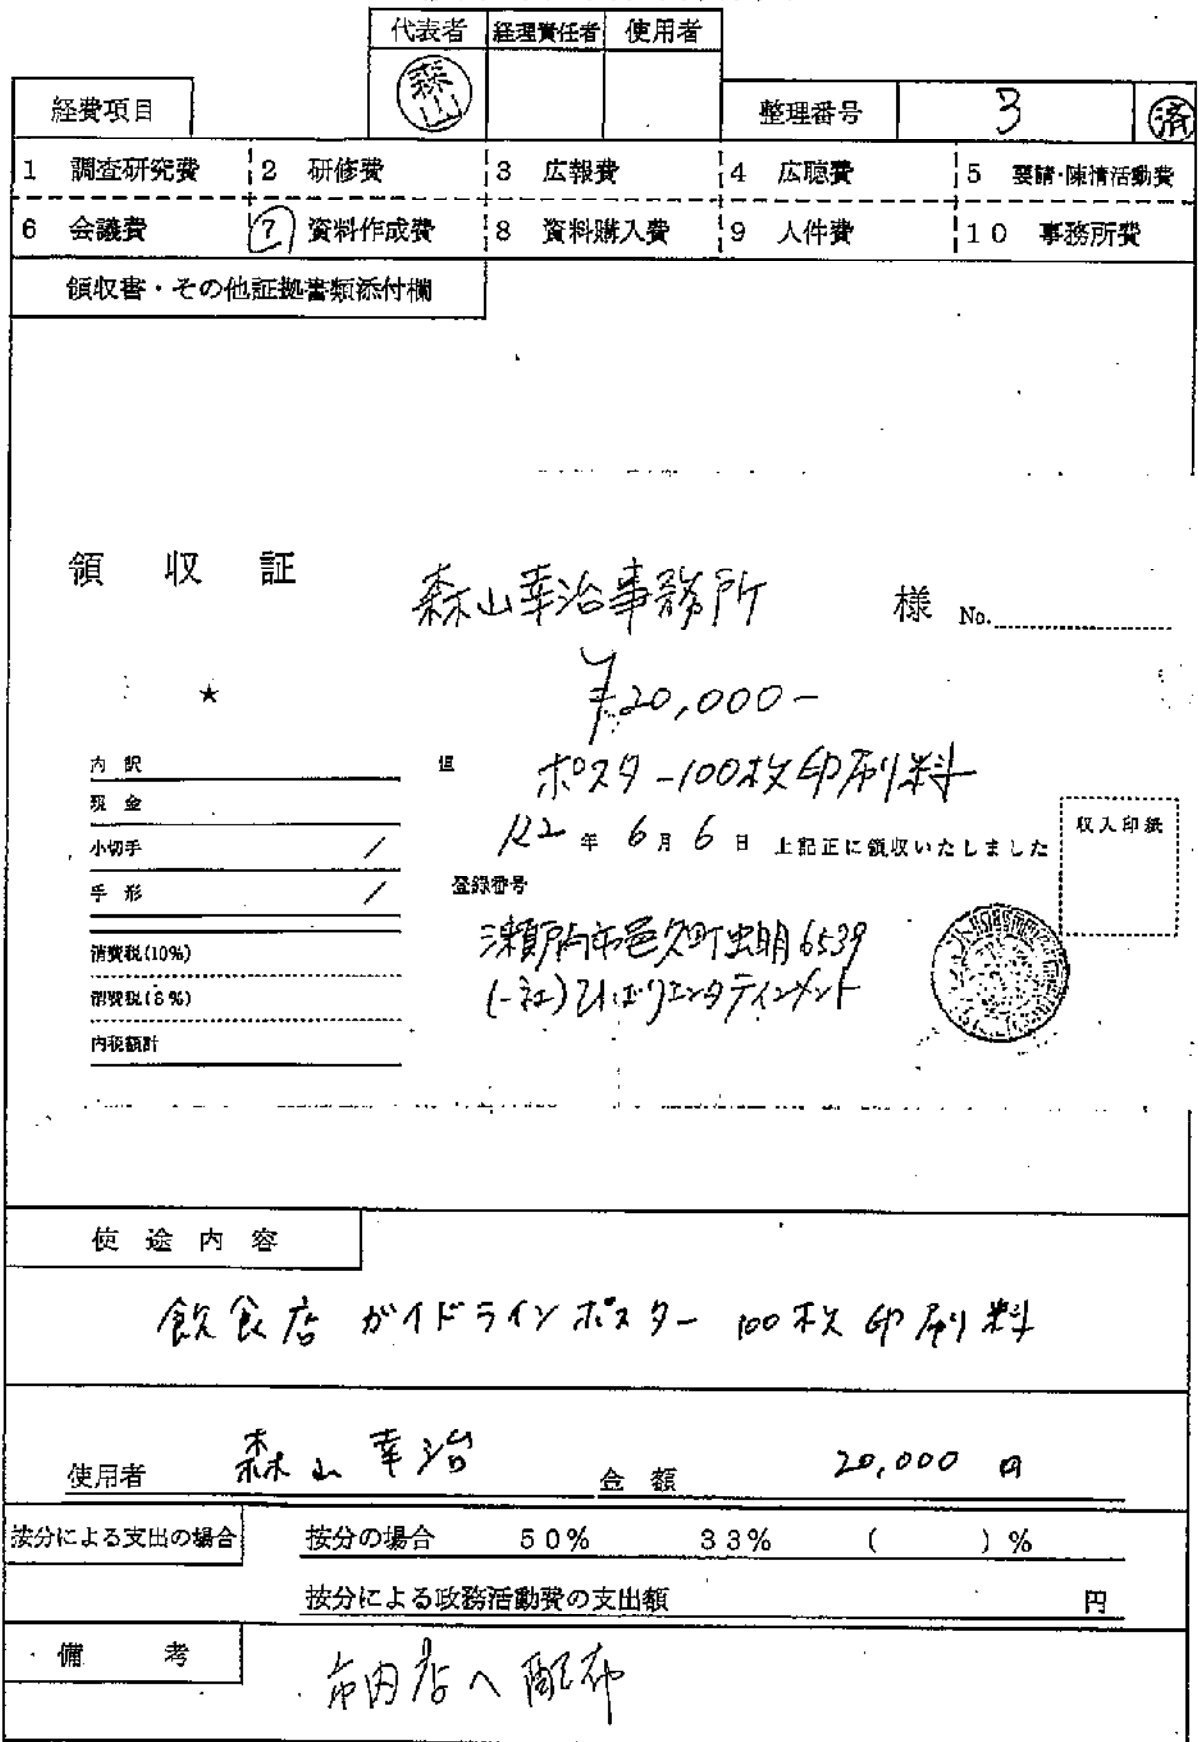 代表者 経理責任者 使用者
森山
経費項目 整理番号 3 済
1 調査研究費 2 研修費 3 広報費 4 広聴費 5 要請・陳情活動費
6 会議費 7 資料作成費 8 資料購入費 9 人件費 10 事務所費
領収書・その他証拠書類添付欄
領収証 森山幸治事務所 様 No.
★ ¥20,000-
内訳 但 ポスター100枚印刷料
現金
R2年6月6日 上記正に領収いたしました 収入印紙
小切手 /
手形 / 登録番号
消費税(10%) 瀬戸内市邑久町虫明6539
消費税(8%) (一社)ひばりエンタテインメント
内税額計
使途内容
飲食店 ガイドラインポスター 100枚印刷料
使用者 森山幸治 金額 20,000円
按分による支出の場合 按分の場合 50% 33% ( )%
按分による政務活動費の支出額 円
備考 市内店へ配布